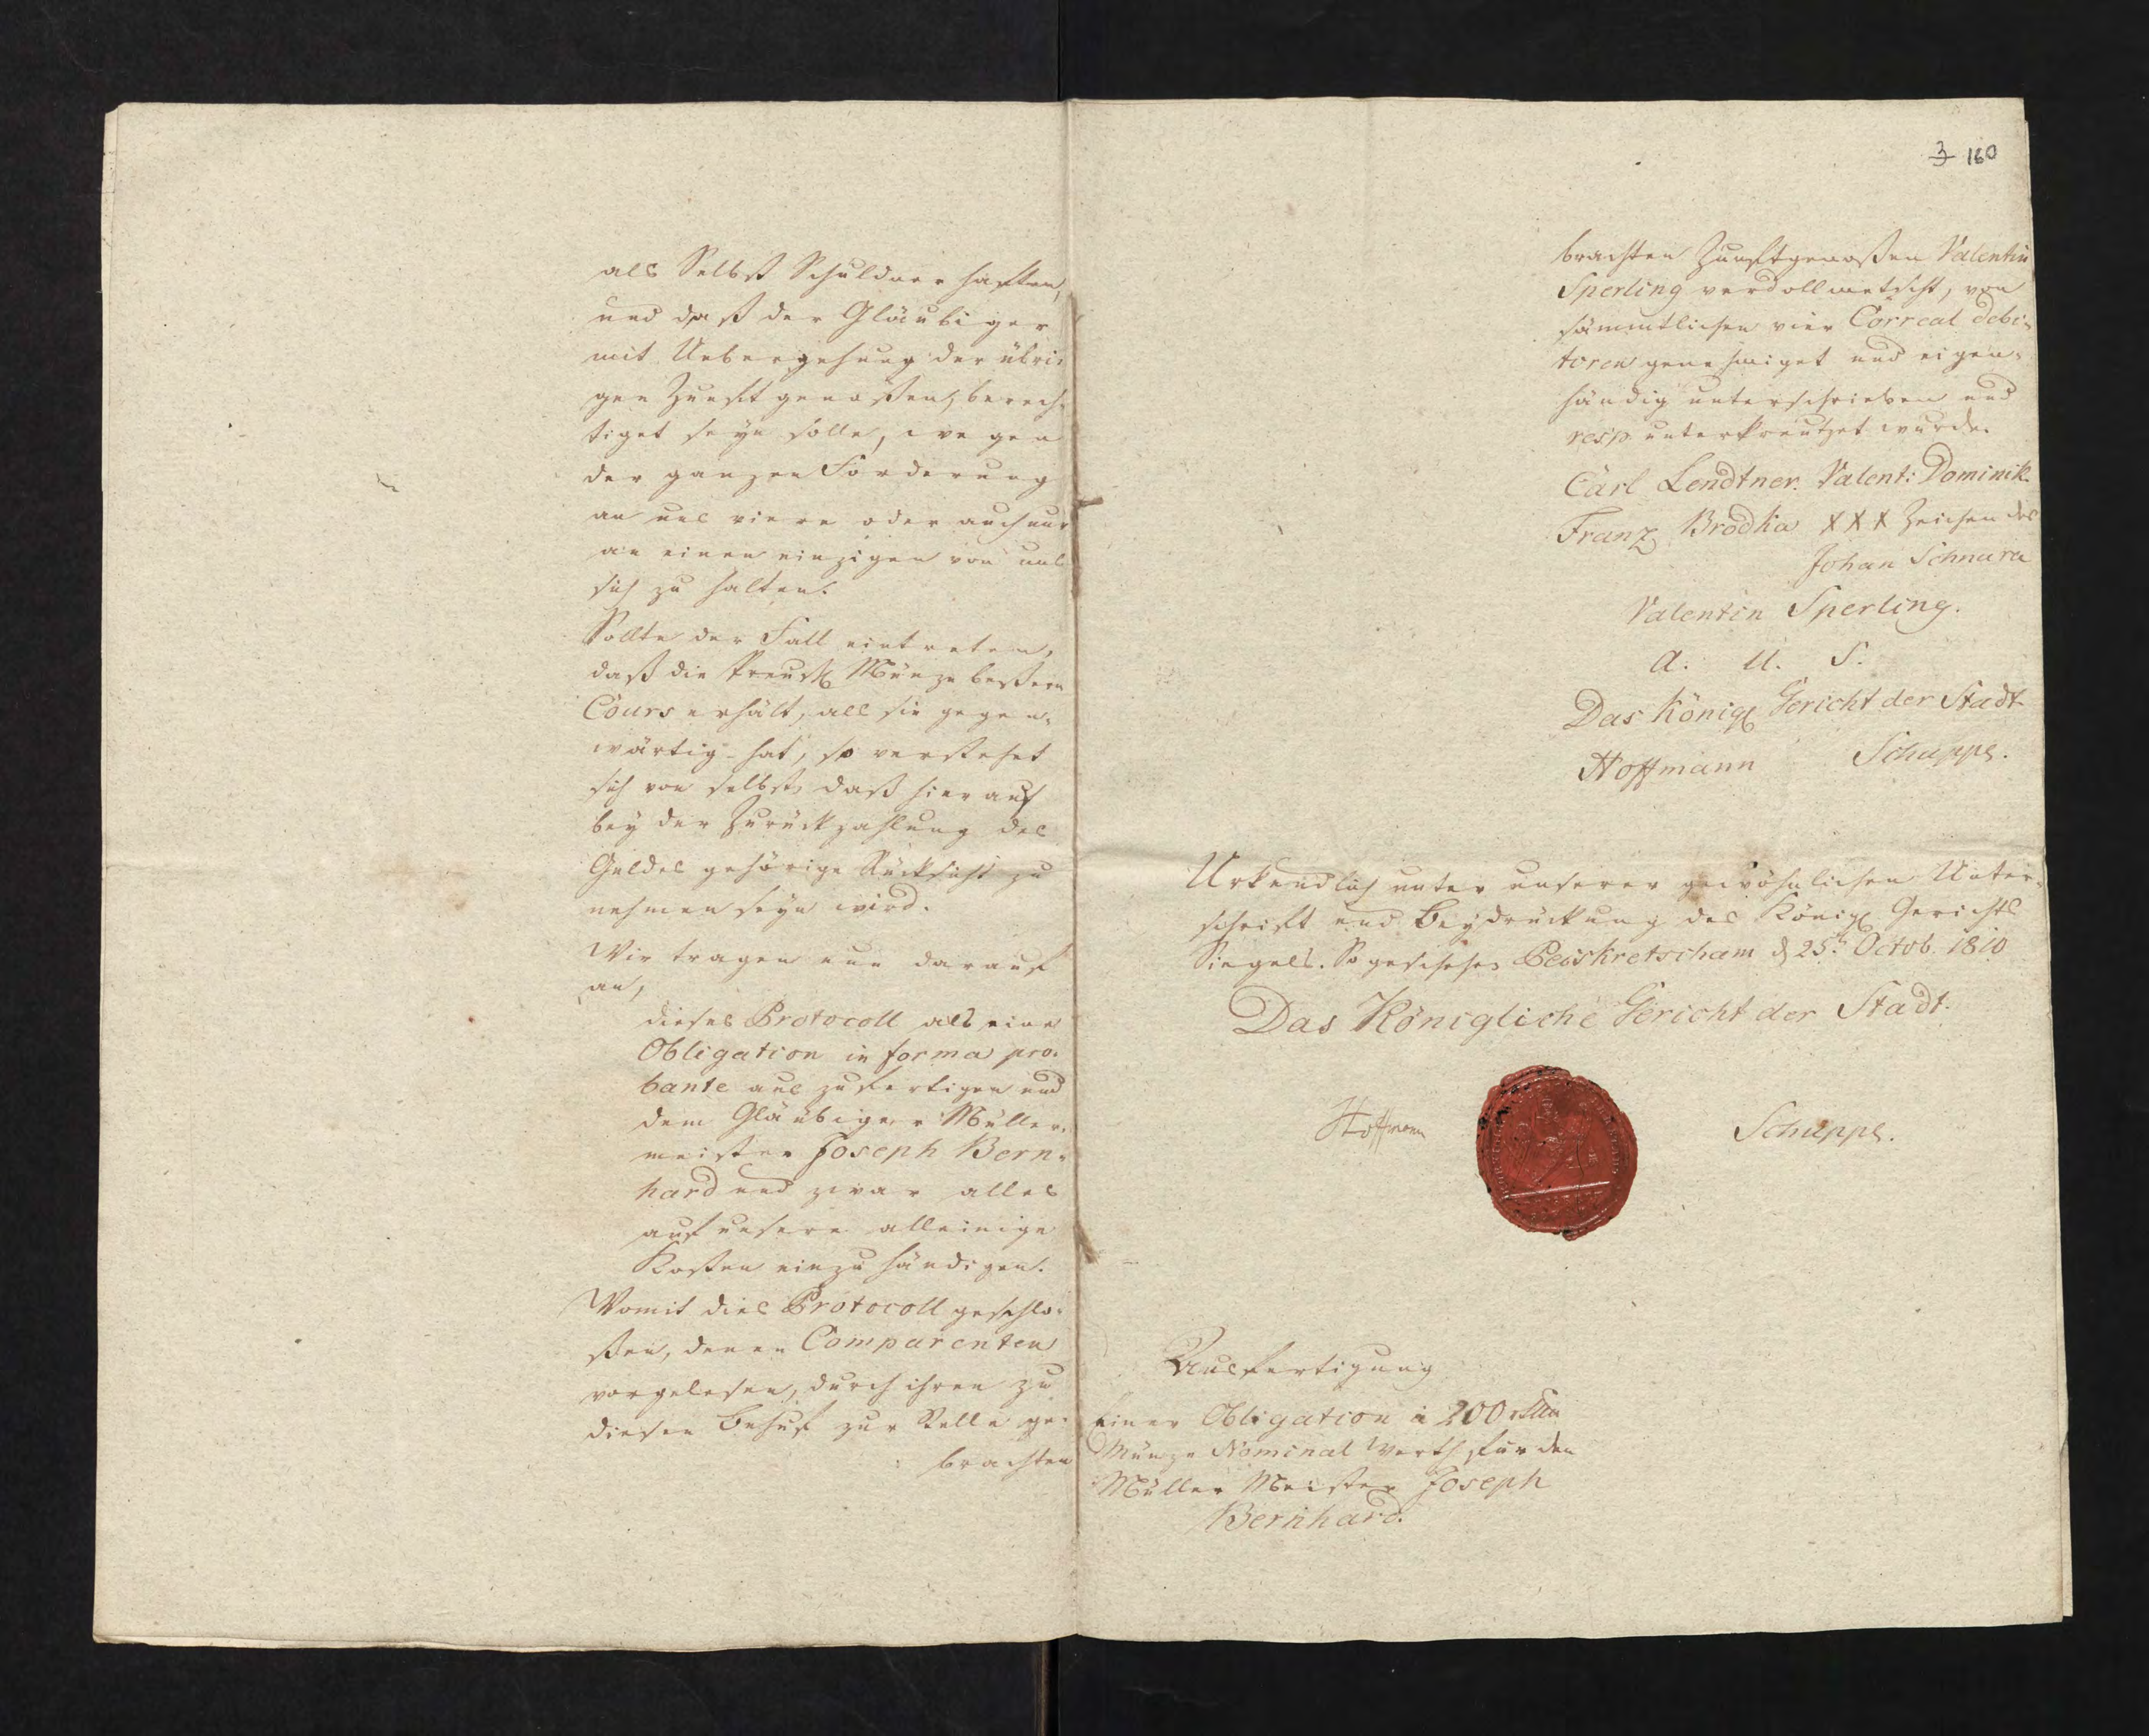 als Selbst Schuldner haften,
und daß der Gläubiger
mit Uebergehung der übri-
gen Zunftgenoßen, berech-
tiget seyn solle, wegen
der ganzen Forderung
an uns viere oder auch nur
an einen einzigen von uns
sich zu halten.
Sollte der Fall eintreten,
daß die Preuß. Münze beßern
Cours erhält, als sie gegen-
wärtig hat, so verstehet
sich von selbst, daß hierauf
bey der Zurückzahlung des
Geldes gehörige Rücksicht zu
nehmen seyn wird.
Wir tragen nun darauf
an,
dieses Protocoll als eine
Obligation in forma pro-
bante auszufertigen und
dem Gläubiger Müller-
meister Joseph Bern-
hard und zwar alles
auf unsere alleinige
Kosten einzuhändigen.
Womit dies Protocoll geschlo-
ßen, denen Comparenten
vorgelesen, durch ihren zu
diesen Behuf zur Stelle ge-
brachten
3 160
brachten Zunftgenoßen Valentin
Sperling verdollmetscht, von
sämmtlichen vier Correal debi-
toren genehmiget und eigen-
händig unterschrieben und
resp. unterkreutzet wurde.
Carl Lendtner. Valent: Dominik.
Franz Brodka XXX Zeichen des
Johan Schnura
Valentin Sperling.
a. u. s.
Das Königl. Gericht der Stadt
Hoffmann Schuppe.
Urkundlich unter unserer gewöhnlichen Unter-
schrift und Beydrückung des Königl. Gerichts
Siegels. So geschehen Peiskretscham d 25t. Octob. 1810
Das Königliche Gericht der Stadt.
Hoffmann Schuppe.
Ausfertigung
Einer Obligation à 200 rthlr
Münze Nominal Werth, für den
Müller Meister Joseph
Bernhard.